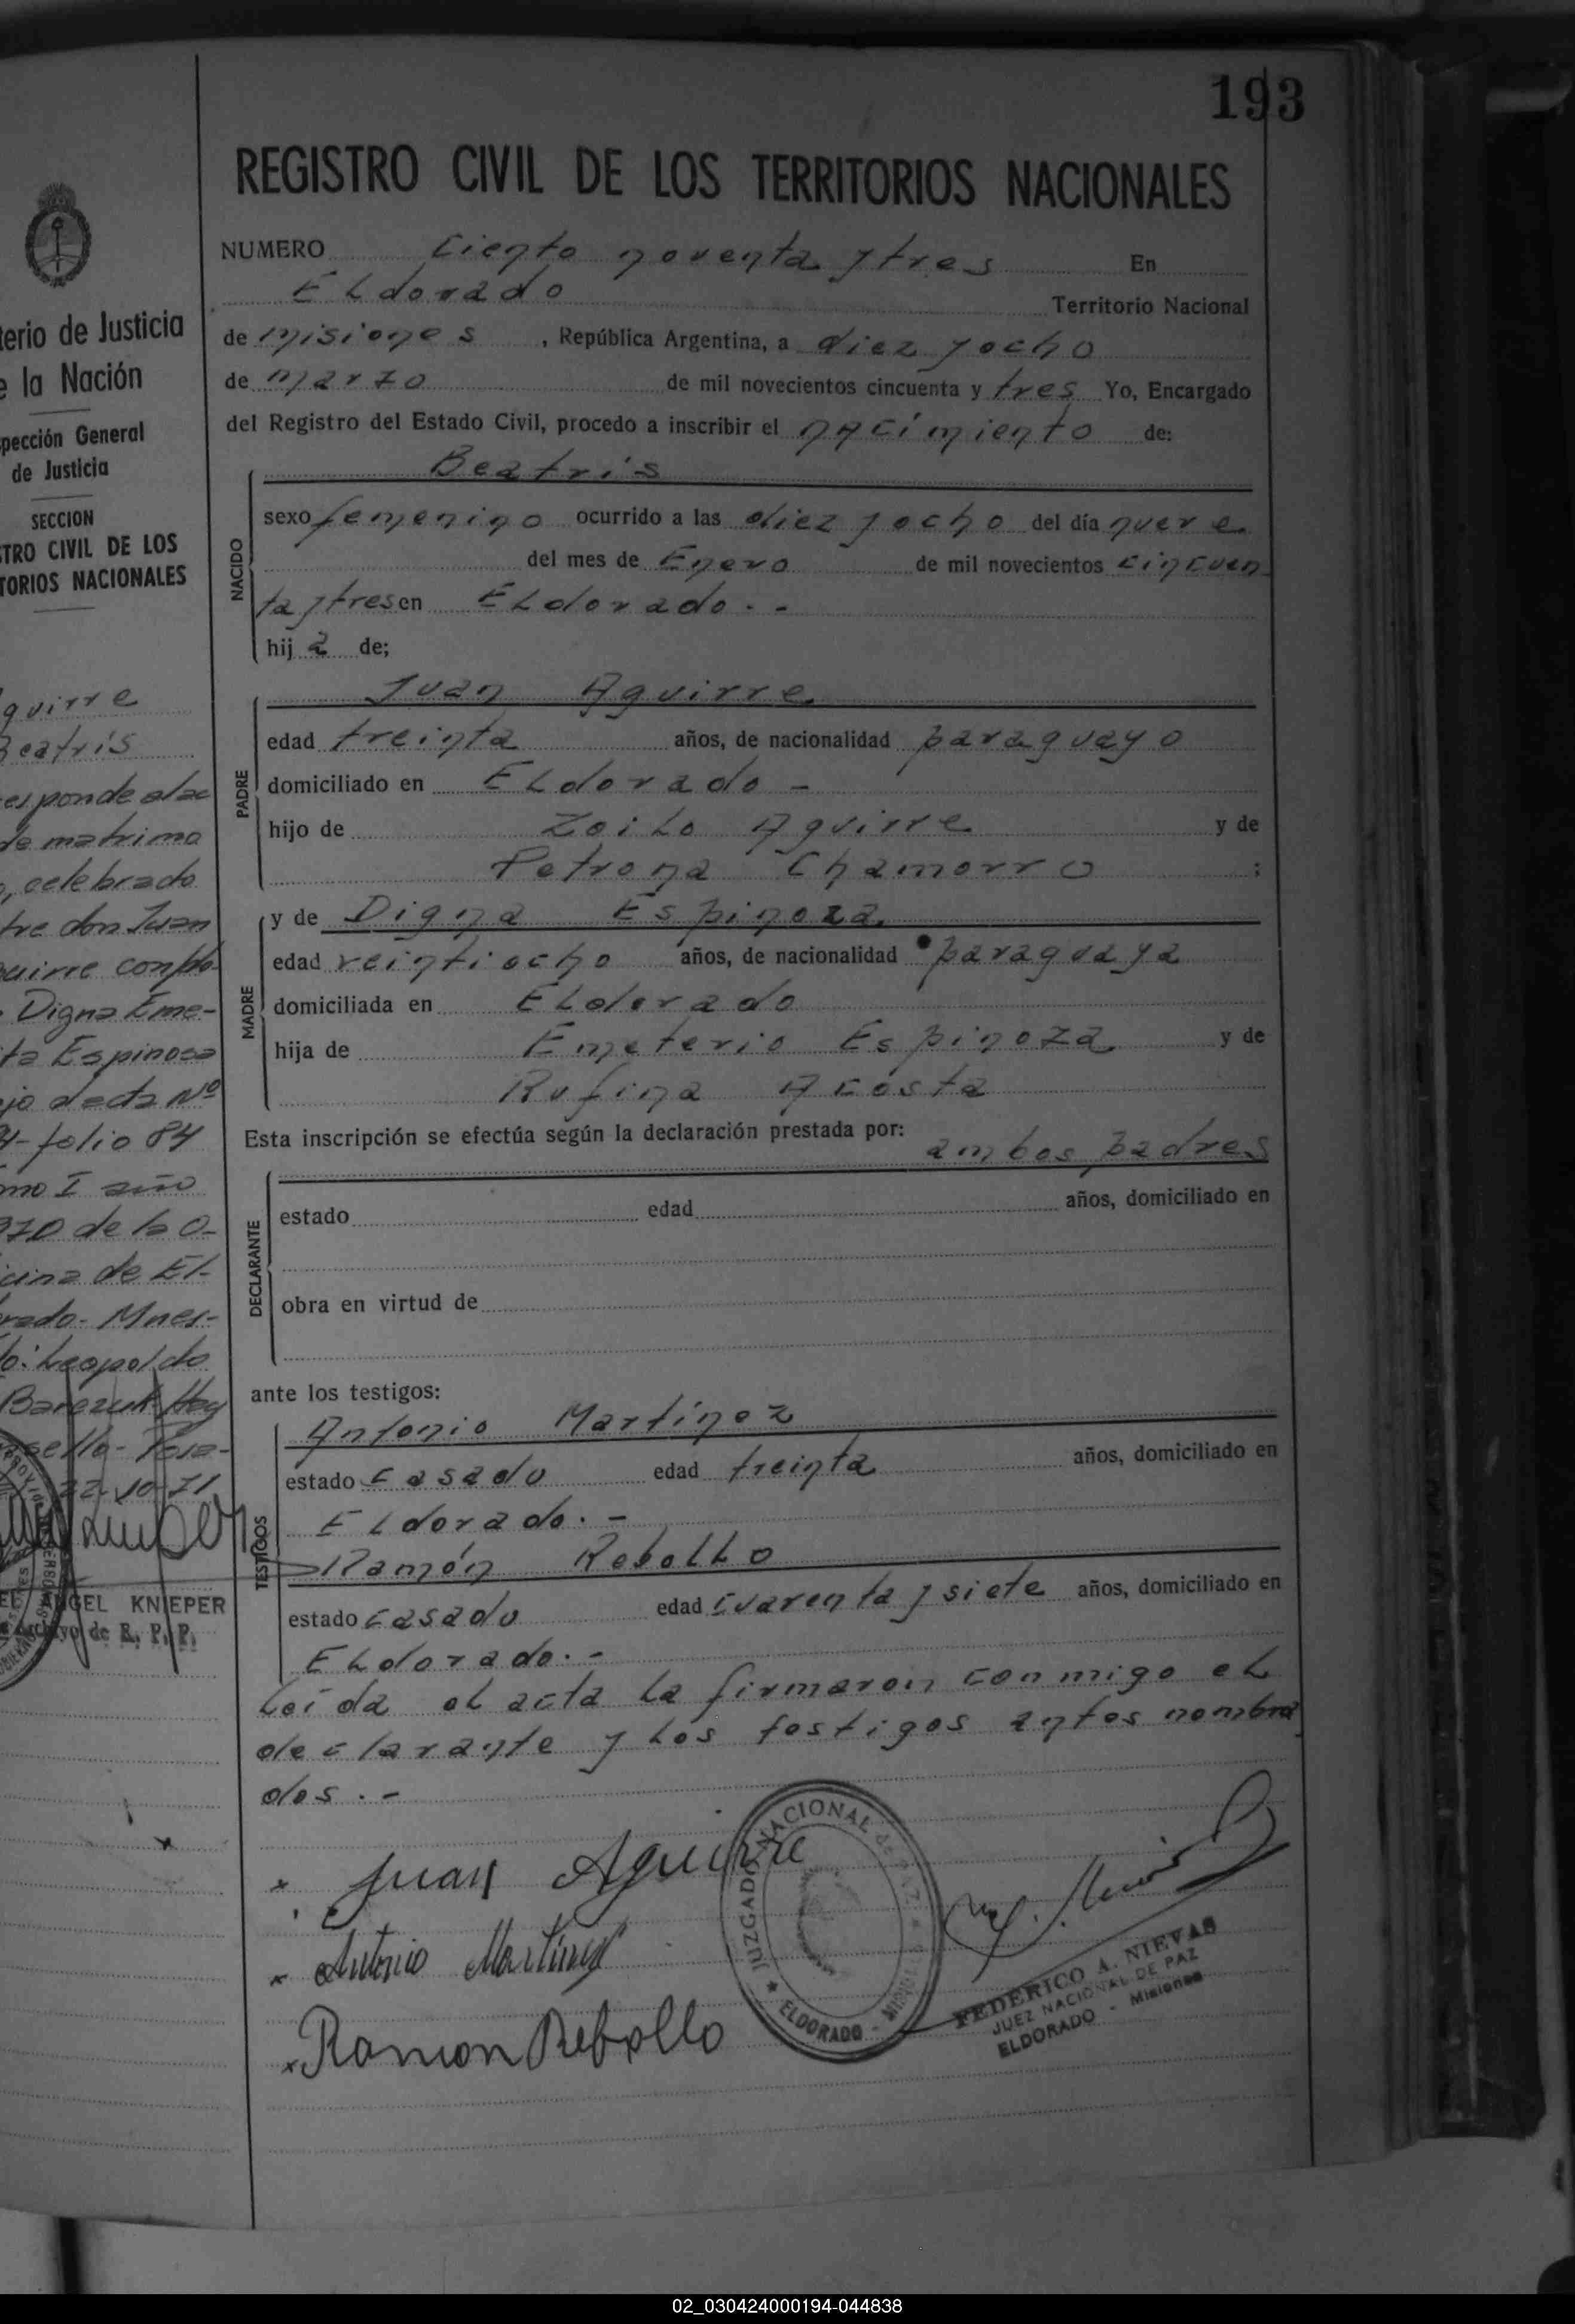 193
REGISTRO CIVIL DE LOS TERRITORIOS NACIONALES
NUMERO Ciento noventa y tres En
ELdorado Territorio Nacional
de misiones , República Argentina, a diez y ocho
de marzo de mil novecientos cincuenta y tres Yo, Encargado
del Registro del Estado Civil, procedo a inscribir el nacimiento de:
NACIDO
Beatris
sexo femenino ocurrido a las diez y ocho del día nueve
del mes de Enero de mil novecientos cincuen
ta y tres en ELdorado. -
hij a de;
PADRE
Juan Aguirre
edad treinta años, de nacionalidad paraguayo
domiciliado en ELdorado -
hijo de ZoiLo Aguirre y de
Petrona Chamorro ;
MADRE
y de Digna Espinoza
edad veintiocho años, de nacionalidad paraguaya
domiciliada en ELdorado
hija de Emeterio Espinoza y de
Rufina Acosta
Esta inscripción se efectúa según la declaración prestada por: ambos padres
DECLARANTE
estado edad años, domiciliado en
obra en virtud de
ante los testigos:
TESTIGOS
Antonio Martínez
estado casado edad treinta años, domiciliado en
ELdorado. -
Ramón RebolLo
estado casado edad cuarenta y siete años, domiciliado en
ELdorado. -
Leída el acta la firmaron conmigo el
declarante y los testigos antes nombra
dos. -
x Juan Aguirre
x Antonio Martínez
x Ramon Rebollo
JUZGADO NACIONAL de PAZ
ELDORADO -
FEDERICO A. NIEVAS
JUEZ NACIONAL DE PAZ
ELDORADO - Misiones
terio de Justicia
e la Nación
spección General
de Justicia
SECCION
STRO CIVIL DE LOS
TORIOS NACIONALES
guirre
Beatrís
esponde al ac
de matrimo
, celebrado
tre don Juan
uirre con do-
Digna Eme-
ta Espinosa
jo acta Nº
4-folio 84
mo I año
970 de la O-
icina de El-
rado- Mnes-
o: Leopoldo
22-10-71
ANGEL KNIEPER
Archivo de R. P. P.
02_030424000194-044838